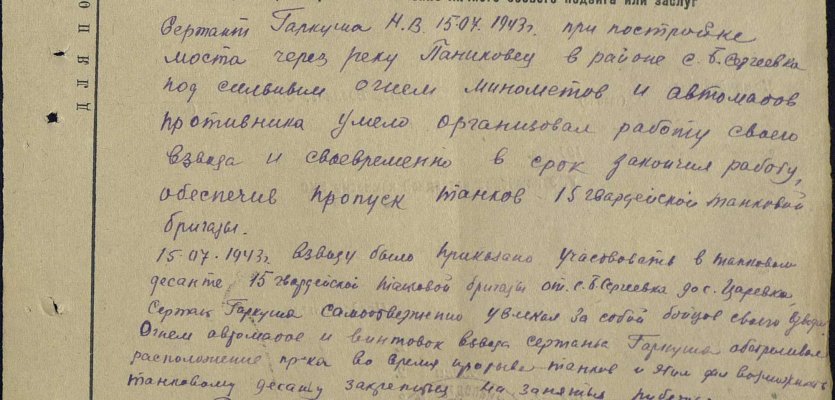 боевого подвига или заслуг
Сержант Гаркуша Н.В. 15.07.1943г. при постройке
моста через реку Паниковец в районе с. Б. Сергеевка
под сильным огнем минометов и автоматов
противника умело организовал работу своего
взвода и своевременно в срок закончил работу,
обеспечив пропуск танков 15 гвардейской танковой
бригады.
15.07.1943г. взводу было приказано участвовать в танковом
десанте 15 гвардейской танковой бригады от с. Б. Сергеевка до с. Царевка
Сержант Гаркуша самоотверженно увлекал за собой бойцов своего взвода.
Огнем автоматов и винтовок взвода сержанта Гаркуша обстреливал
расположение пр-ка во время прорыва танков и этим дал возможность
танковому десанту закрепиться на занятых